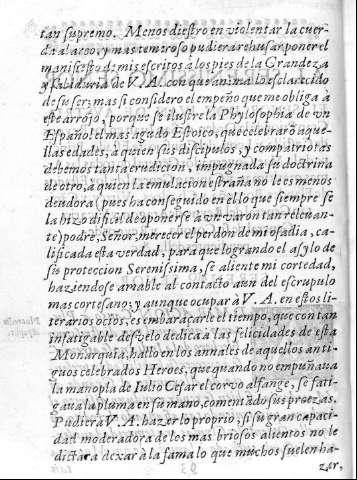 tan supremo. Menos diestro en violentar la cuer-
da al arco, y mas temeroso pudiera rehusar poner el
manifiesto de mis escritos à los pies de la Grandeza
y sabiduria de V. A. con que anima lo esclarecido
de su ser; mas si considero el empeño que me obliga a
este arrojo, porque se ilustre la Phylosophia de vn
Español el mas agudo Estoico, que celebrarõ aque-
llas edades, à quien sus discipulos, y compatriotas
debemos tanta erudicion, impugnada su doctrina
de otro, a quien la emulacion estraña no le es menos
deudora (pues ha conseguido en ello que siempre se
la hizo dificil de oponerse à vn varon tan releuan-
te) podrè, Señor, merecer el perdòn de mi osadia, ca-
lificada esta verdad, para que logrando el asylo de
sus proteccion Serenissima, se aliente mi cortedad,
haziendose amable al contacto aun del escrupulo
mas cortesano; y aunque ocupar à V. A. en estos li-
terarios ocios, es embaraçarle el tiempo, que con tan
infatigable desvelo dedica a las felicidades de esta
Monarquia, hallo en los annales de aquellos anti-
guos celebrados Heroes, que quando no empuñaua
la manopla de Iulio Cesar el corvo alfange, se fati-
gaua la pluma en su mano, comentãdo sus proezas.
Pudiera V. A. hazer lo proprio, si su gran capaci-
dad moderadora de los mas briosos alientos no le
dictara dexar à la fama lo que muchos suelen ha-
zer,